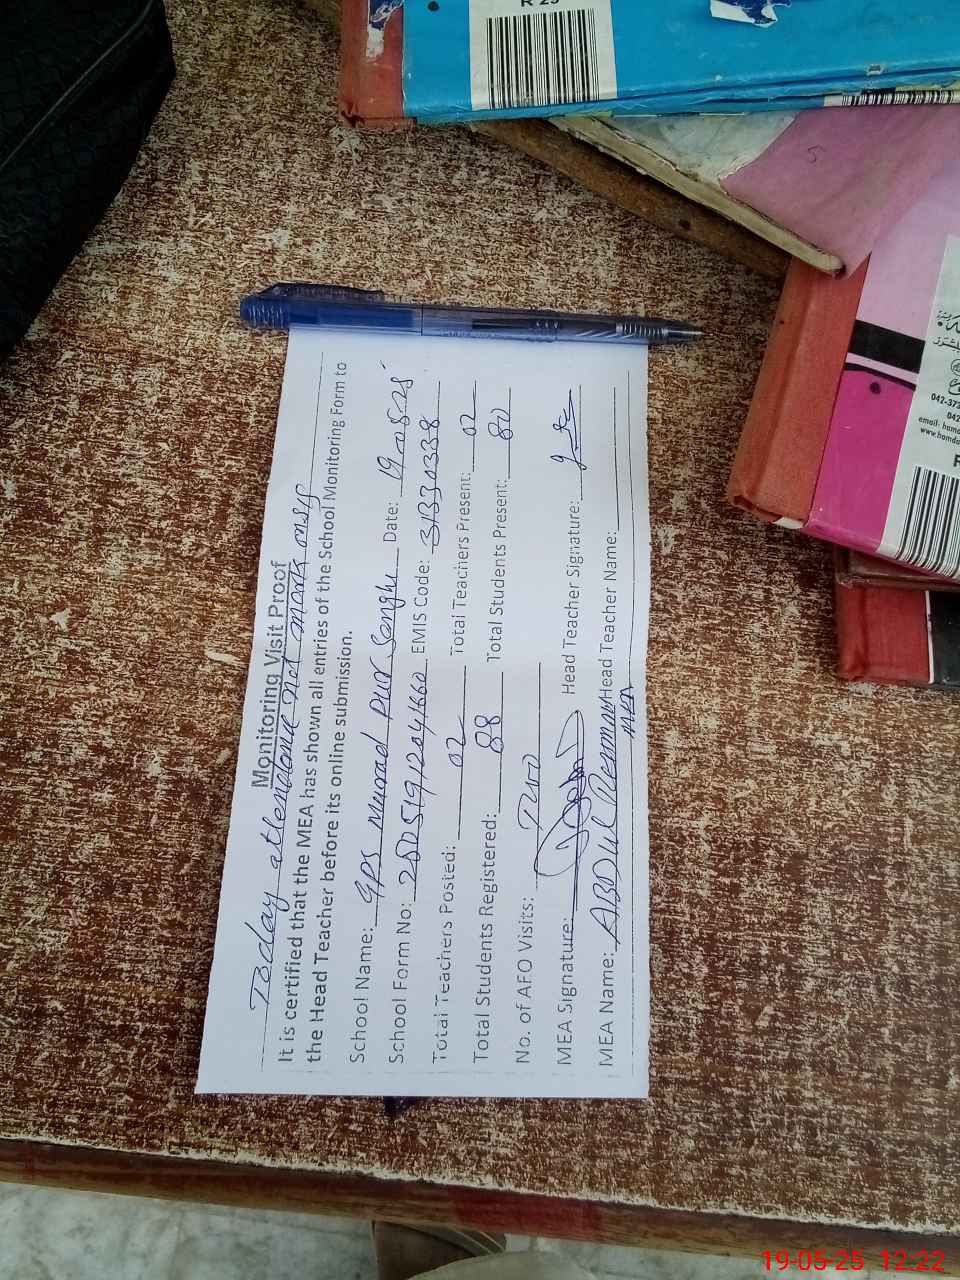 R 29
S
042-373
042
email: hamd
www.hamda
Monitoring Visit Proof
Today attendance not marks on SIS
It is certified that the MEA has shown all entries of the School Monitoring Form to
the Head Teacher before its online submission.
School Name: GPS Murad Pur Sanghi Date: 19-05-25
School Form No: 25051912041660 EMIS Code: 31330338
Total Teachers Posted: 02 Total Teachers Present: 02
Total Students Registered: 88 Total Students Present: 80
No. of AEO Visits: Two
MEA Signature: Head Teacher Signature:
MEA Name: ABDUL Rehman Head Teacher Name:
MEA
19-05-25 12:22